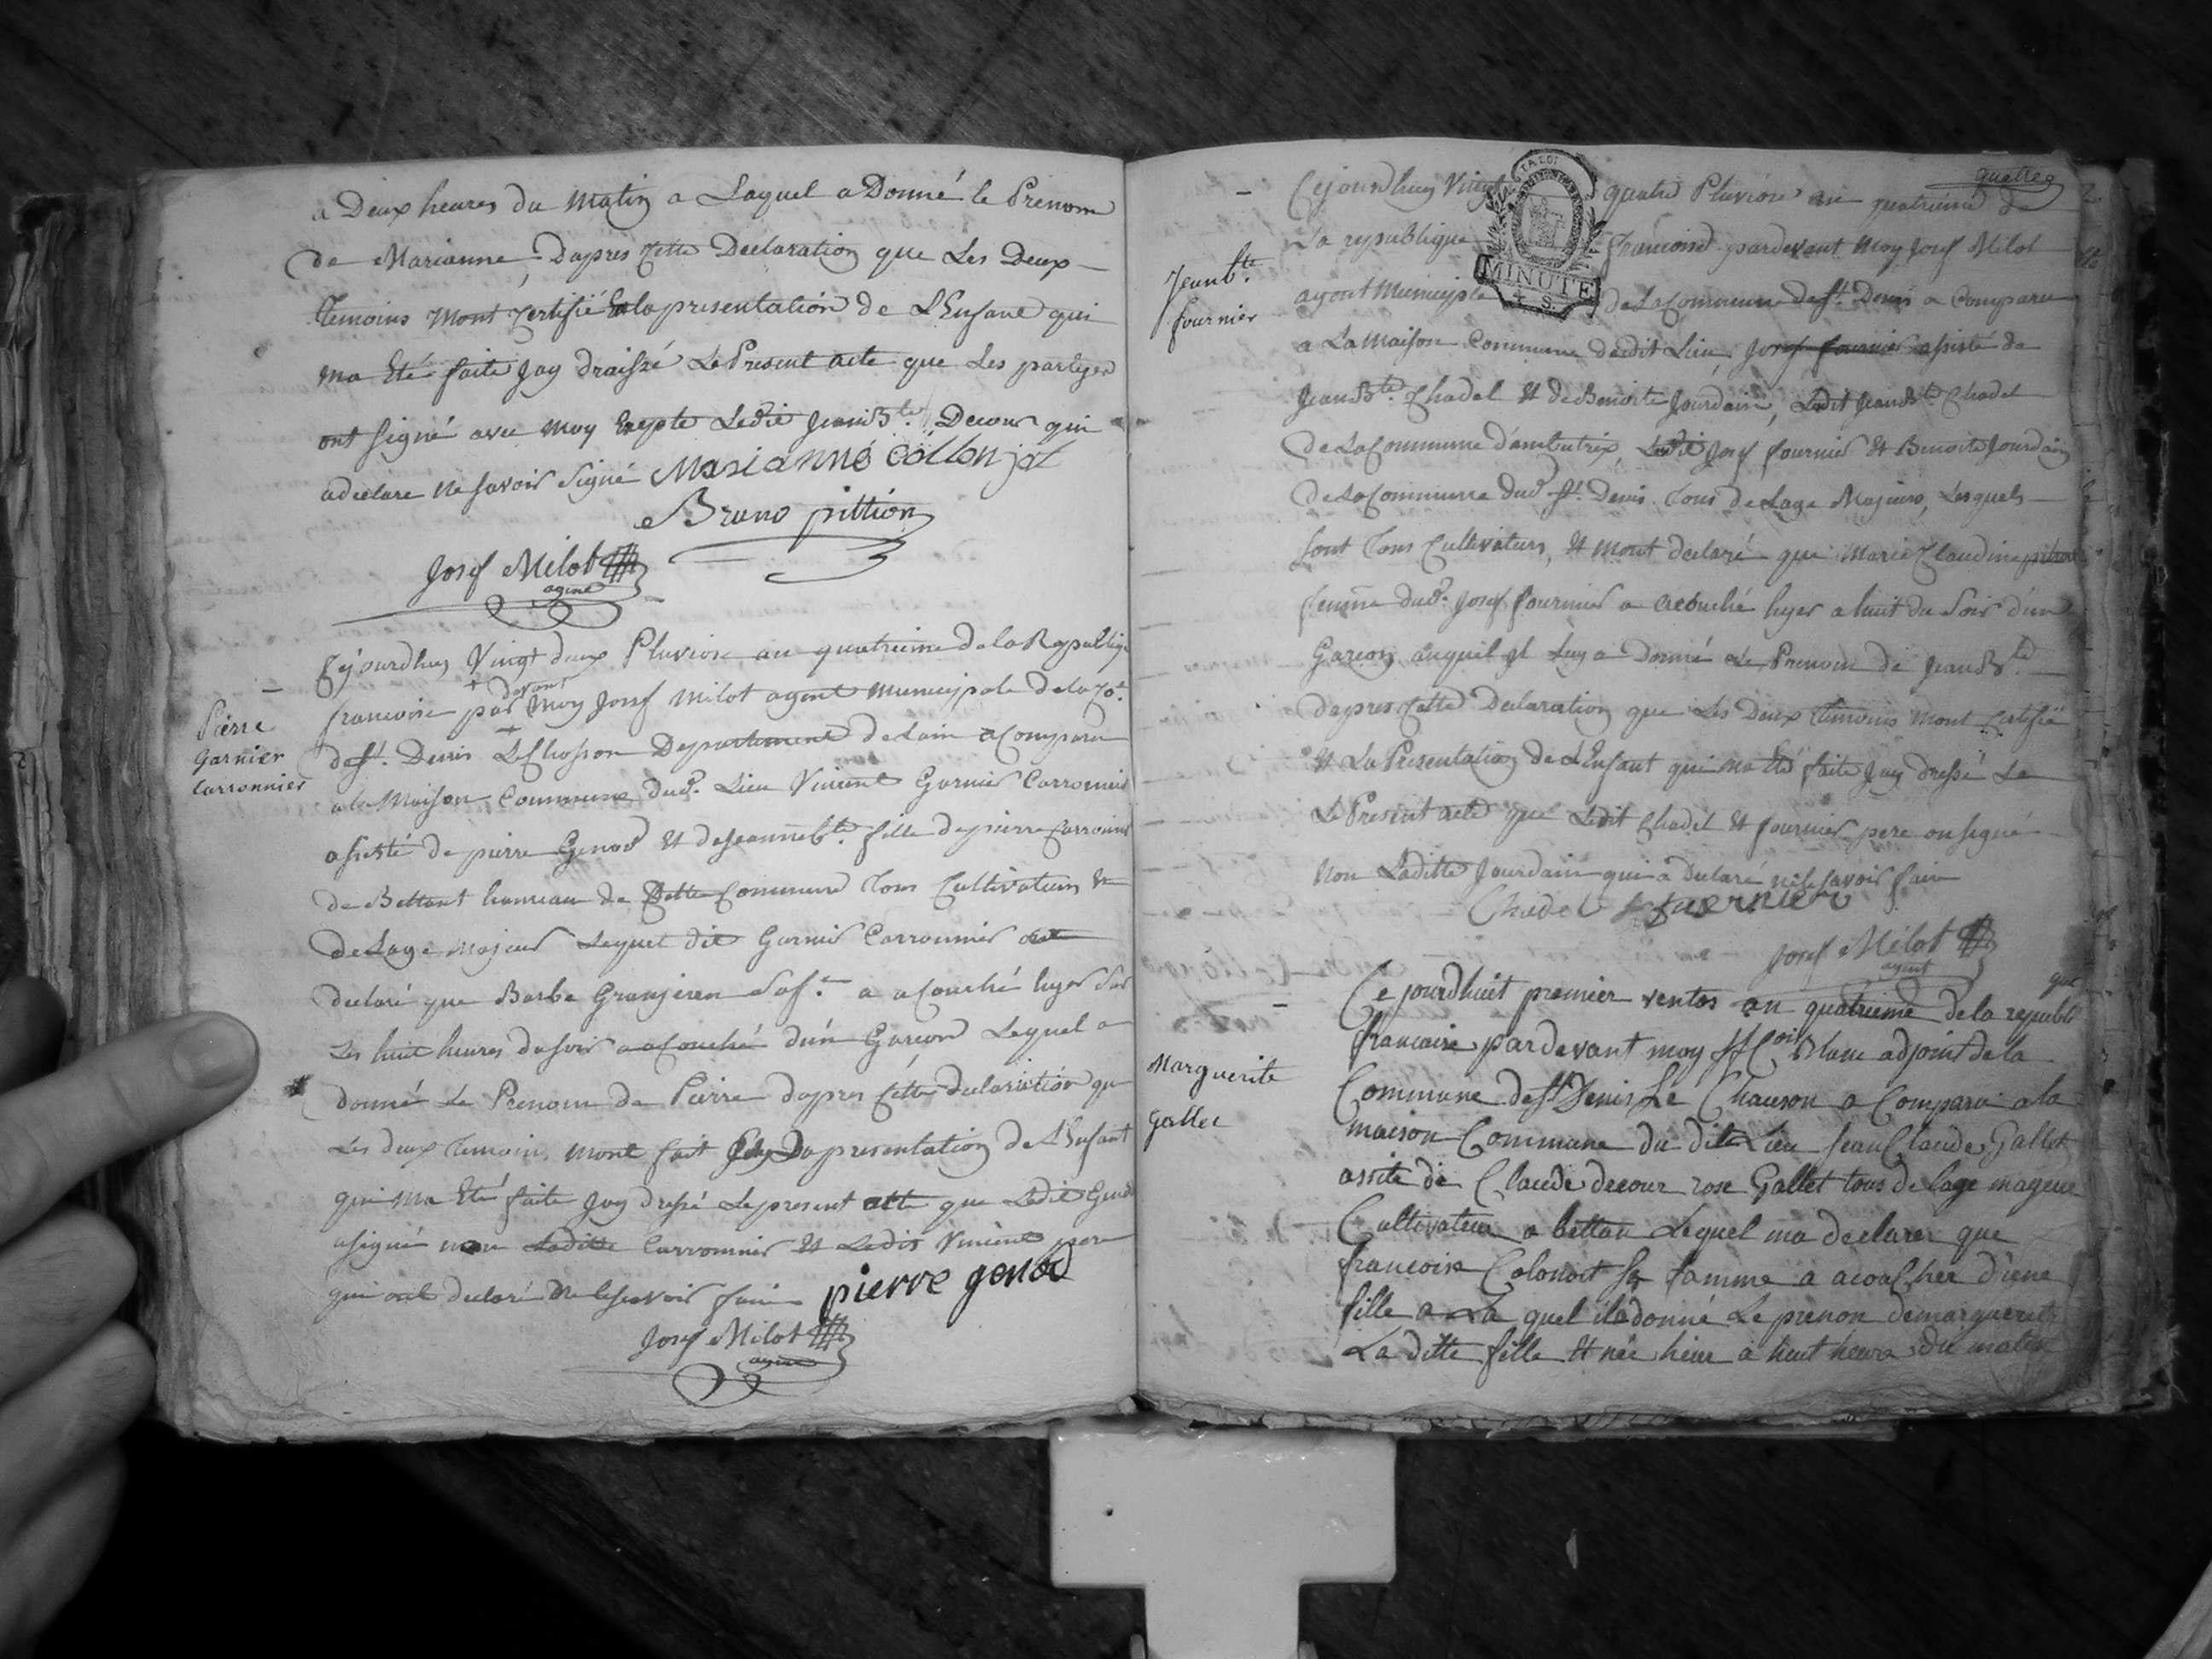 a Deux heures du Matin a Laquel a Donné le Prenom
de Marianne Dapres Cette Declaration que Les Deux
Temoins Mont Certifié la presentation de L'Enfant qui
ma Eté faite Jay draissé Le Present acte que Les partyes
ont signé avec moy Exepte Ledit Jean B.te Decour qui
a declare ne savoir Signé Marianne Collonjat
Bruno pittion
Josef Milot
agent
Cejourdhuy Vingt deux Pluviose an quatrieme de la Republiq
francoise par devant Moy Josef Milot agent Municipale de la Co.e
de St. Denis Le Chosson Departement de Lain a Comparu
a la Maison Commune dud. Lieu Vincent Garnier Carronnier
Pierre
Garnier
Carronnier
assisté de pierre Genod et de Jeanne B.te fille de pierre Carronnier
de Bettant hameau de Cette Commune Tous Cultivateurs &
de Lage Majeur Lequel dit Garnier Carronnier
declaré que Barbe Granjeren Sa f.e a acouché hyer Sur
Les huit heures du soir a acouché d'un Garcon Lequel a
donné Le Prenom de Pierre dapres Cette declaration que
Les deux Temoins mont fait La presentation de L'Enfant
qui Ma Eté faite Jay dressé Le present acte que Ledit Genod
a signé non Laditte Carronnier et Ledit Vincent pere
qui ont declaré ne le savoir faire pierre genod
Josef Milot
agent
quatre
Cejourdhuy Vingt quatre Pluviose an quatrieme de
La republique francoise pardevant Moy Josef Milot
MINUTE
Jean b.te
fournier
agent Municiple de La Commune de St. Denis a Comparu
a La Maison Commune dudit Lieu Josef fournier assisté de
Jean B.te Chadel et de Benoite Jourdain, Ledit Jean B.te Chadel
de La Commune d'ambutrix, Ledit Josef fournier et Benoite Jourdain
de La Commune dud. St. Denis Tous de Lage Majeurs, Lesquels
sont Tous Cultivateurs, et mont declaré que Marie Claudine
femme dud. Josef fournier a acouché hyer a huit du Soir d'un
Garcon auquel il Luy a Donné Le Prenom de Jean B.te
dapres Cette Declaration que Les Deux Temoins Mont Certifié
et La Presentation de L'Enfant qui ma Eté faite Jay dressé Le
Le Present acte que Ledit Chadel et fournier pere on signé
Non Laditte Jourdain qui a Declaré ne le savoir faire
Chadel
Josef Milot
agent
Ce jourdhuit premier ventos an quatrieme de la republi
que
francaise pardevant moy Blanc adjoint de la
Marguerite
Gallet
Commune de St Denis Le Chauson a Comparu a la
maison Commune du dit Lieu Jean Claude Gallet
assite de Claude decour rose Gallet tous de lage mageur
Cultivateur a bettan Lequel ma declarer que
francoise Colonost sa famme a acoucher d'une
fille a La quel il a donné Le prenon de marguerite
La ditte fille et née hier a huit heure du matin